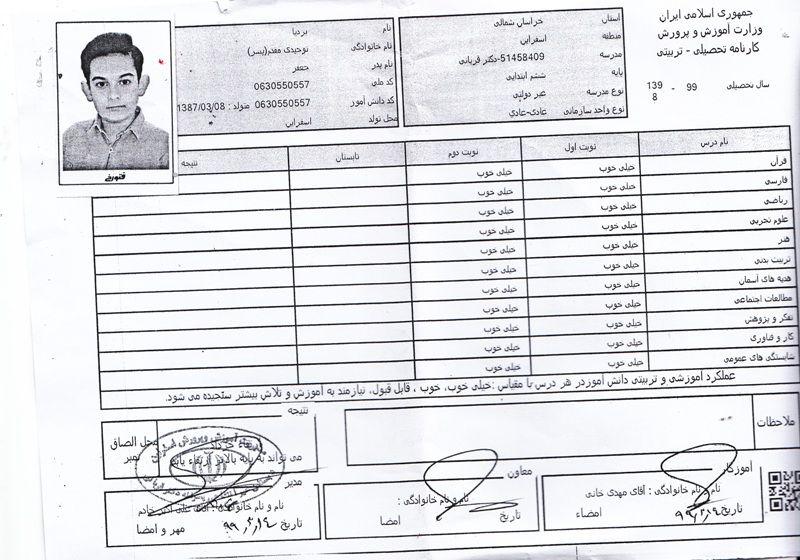 جمهوری اسلامی ایران
وزارت آموزش و پرورش
کارنامه تحصیلی - تربیتی
سال تحصیلی 99 - 1398
استان خراسان شمالی
منطقه اسفراین
مدرسه 51458409-دکتر قربانی
پایه ششم ابتدایی
نوع مدرسه غیر دولتی
نوع واحد سازمانی عادی-عادی
نام بردیا
نام خانوادگی توحیدی مقدم(پسر)
نام پدر جعفر
کد ملی 0630550557
کد دانش آموز 0630550557 متولد : 1387/03/08
محل تولد اسفراین
نام درس نوبت اول نوبت دوم تابستان نتیجه
قرآن خیلی خوب خیلی خوب
فارسی خیلی خوب خیلی خوب
ریاضی خیلی خوب خیلی خوب
علوم تجربی خیلی خوب خیلی خوب
هنر خیلی خوب خیلی خوب
تربیت بدنی خیلی خوب خیلی خوب
هدیه های آسمان خیلی خوب خیلی خوب
مطالعات اجتماعی خیلی خوب خیلی خوب
تفکر و پژوهش خیلی خوب خیلی خوب
کار و فناوری خیلی خوب خیلی خوب
شایستگی های عمومی خیلی خوب خیلی خوب
عملکرد آموزشی و تربیتی دانش آموزدر هر درس با مقیاس :خیلی خوب، خوب ، قابل قبول، نیازمند به آموزش و تلاش بیشتر سنجیده می شود.
ملاحظات
نتیجه
ارتقاء خرداد
می تواند به پایه بالاتر ارتقاء یابد
محل الصاق
تمبر
آموزگار
نام و نام خانوادگی : آقای مهدی خانی
تاریخ ۹۹/۳/۰۴ امضاء
معاون
نام و نام خانوادگی :
تاریخ امضا
مدیر
نام و نام خانوادگی : آقای علی اکبر خادم
تاریخ ۹۹/۳/۰۴ مهر و امضا